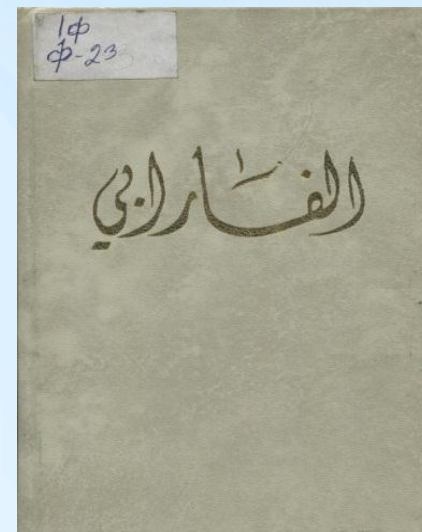 1ф
ф-23
الفارابي